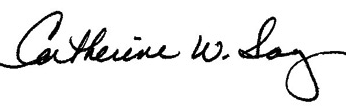 Catherine W. Say